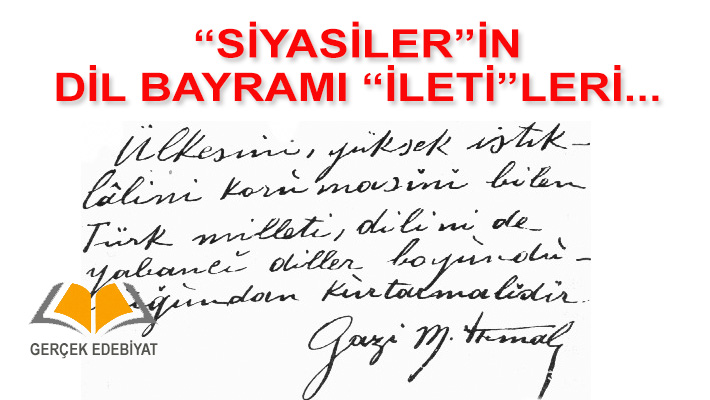 “SİYASİLER”İN
DİL BAYRAMI “İLETİ”LERİ...
Ülkesini, yüksek istik-
lâlini korumasını bilen
Türk milleti, dilini de
yabancı diller boyundu-
ğundan kurtarmalıdır.
Gazi M. Kemal
GERÇEK EDEBİYAT